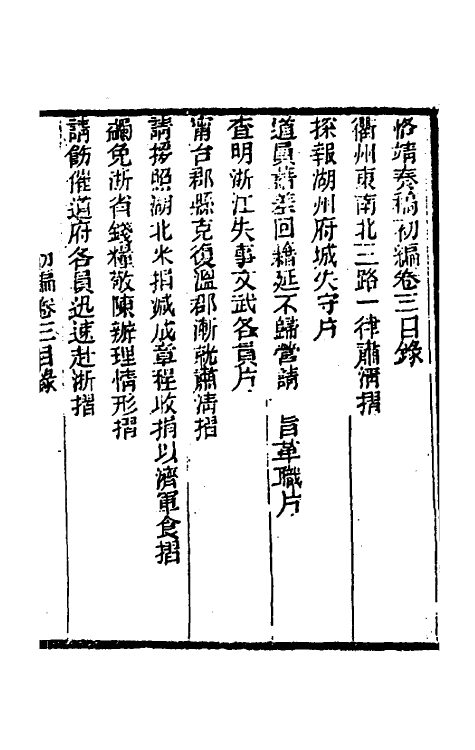 恪靖奏稿初編卷三目錄
衢州東南北三路一律肅淸摺
探報湖州府城失守片
道員藉差回籍延不歸營請 旨革職片
查明浙江失事文武各員片
甯台郡縣克復溫郡漸就肅淸摺
請援照湖北米捐減成章程收捐以濟軍食摺
蠲免浙省錢糧敬陳辦理情形摺
請飭催道府各員迅速赴浙摺
初編卷三目錄